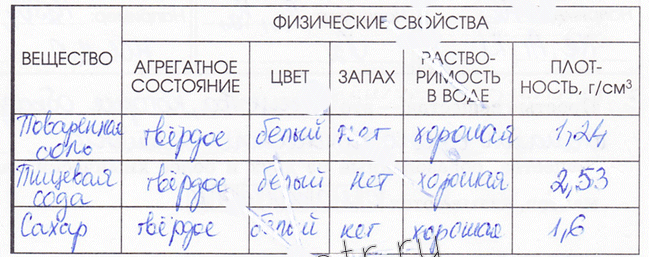 ФИЗИЧЕСКИЕ СВОЙСТВА
ВЕЩЕСТВО
АГРЕГАТНОЕ СОСТОЯНИЕ
ЦВЕТ
ЗАПАХ
РАСТВО-
РИМОСТЬ
В ВОДЕ
ПЛОТ-
НОСТЬ, г/см³
Поваренная соль твёрдое белый нет хорошая 1,24
Пищевая сода твёрдое белый нет хорошая 2,53
Сахар твёрдое белый нет хорошая 1,6